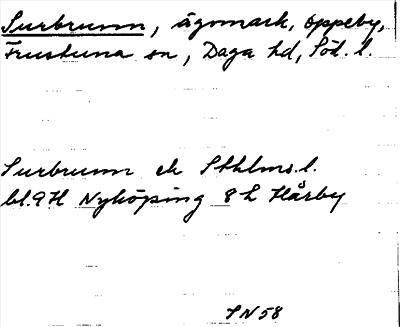 Surbrunn, ägomark, Oppeby,
Frustuna sn, Daga hd, Söd. l.
Surbrunn ek Sthlms. l.
bl. 9H Nyköping 8h Hårby
SN58